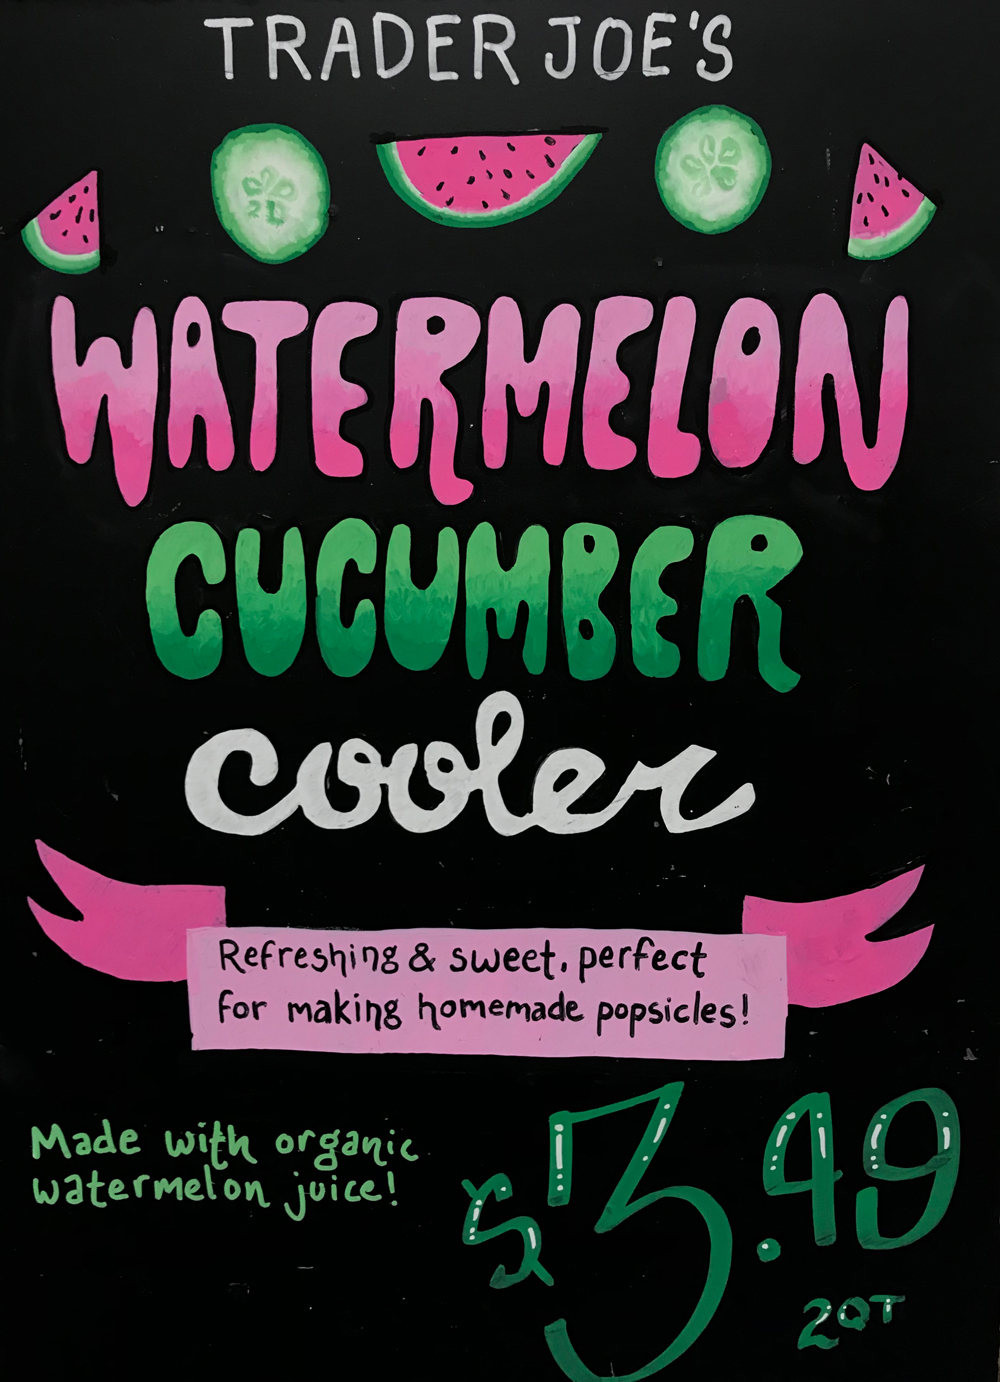 TRADER JOE'S
WATERMELON
CUCUMBER
cooler
Refreshing & sweet, perfect
for making homemade popsicles!
Made with organic
watermelon juice!
$3.49
2QT